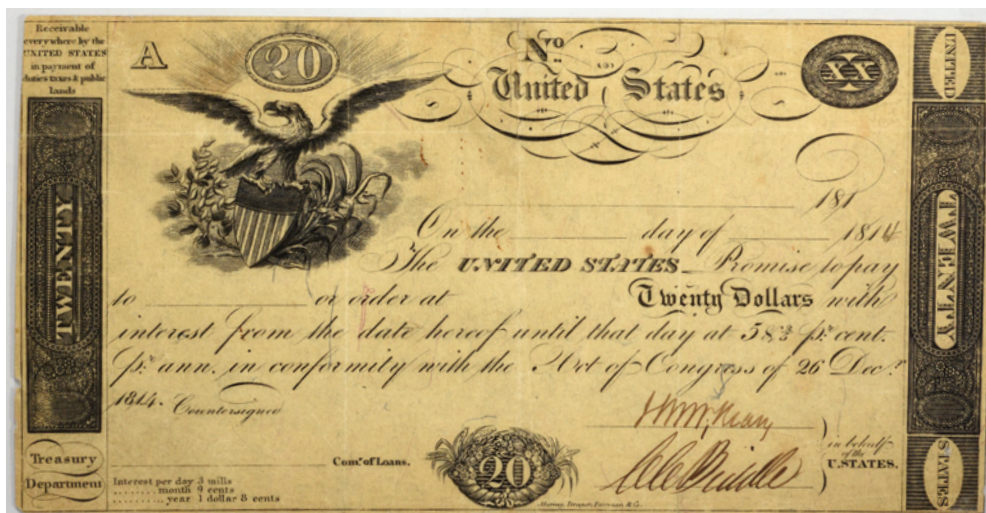 Receivable
everywhere by the
UNITED STATES
in payment of
duties taxes & public
lands
A
20
No.
United States
XX
UNITED
TWENTY
TWENTY
181
On the day of 1814
The UNITED STATES Promise to pay
to or order at Twenty Dollars with
interest from the date hereof until that day at 5 pr. cent.
pr. ann. in conformity with the Act of Congress of 26 Decr.
1814. Countersigned
Treasury
Department
Comr. of Loans.
Interest per day 3 mills
month 9 cents
year 1 dollar 8 cents
20
C C Biddle
in behalf
of the
U.STATES.
STATES
Murray, Draper, Fairman & Co.